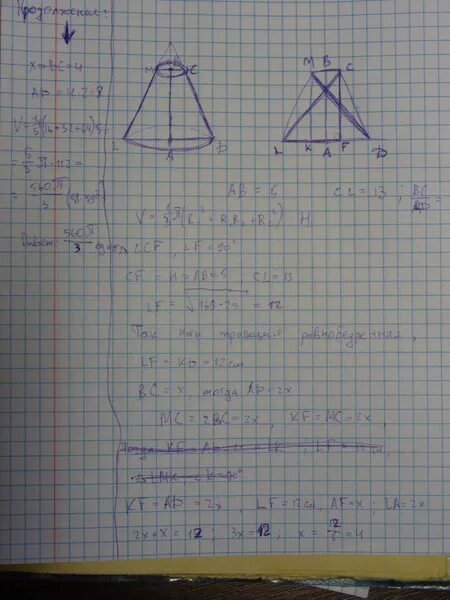 Продолжение:
x = BC = 4
AD = 4·2 = 8
V = (16+32+64)·5 =
= 560π/3
Ответ: 560π/3
M B C
L A D
M B C
L K A F D
CL = 13 ; BC/AD =
V = 1/3 π (R₁² + R₁R₂ + R₂²) · H
LCF, ∠F = 90°
CF = H = AB = 5 ; CL = 13
LF = √169-25 = 12
Так как трапеция равнобедренная,
LF = KD = 12 см
BC = x, тогда AD = 2x
MC = 2BC = 2x, KF = MC = 2x
KF = AD = 2x, LF = 12 см, AF = x ; LA = 2x
2x + x = 12 ; 3x = 12, x = 12/3 = 4